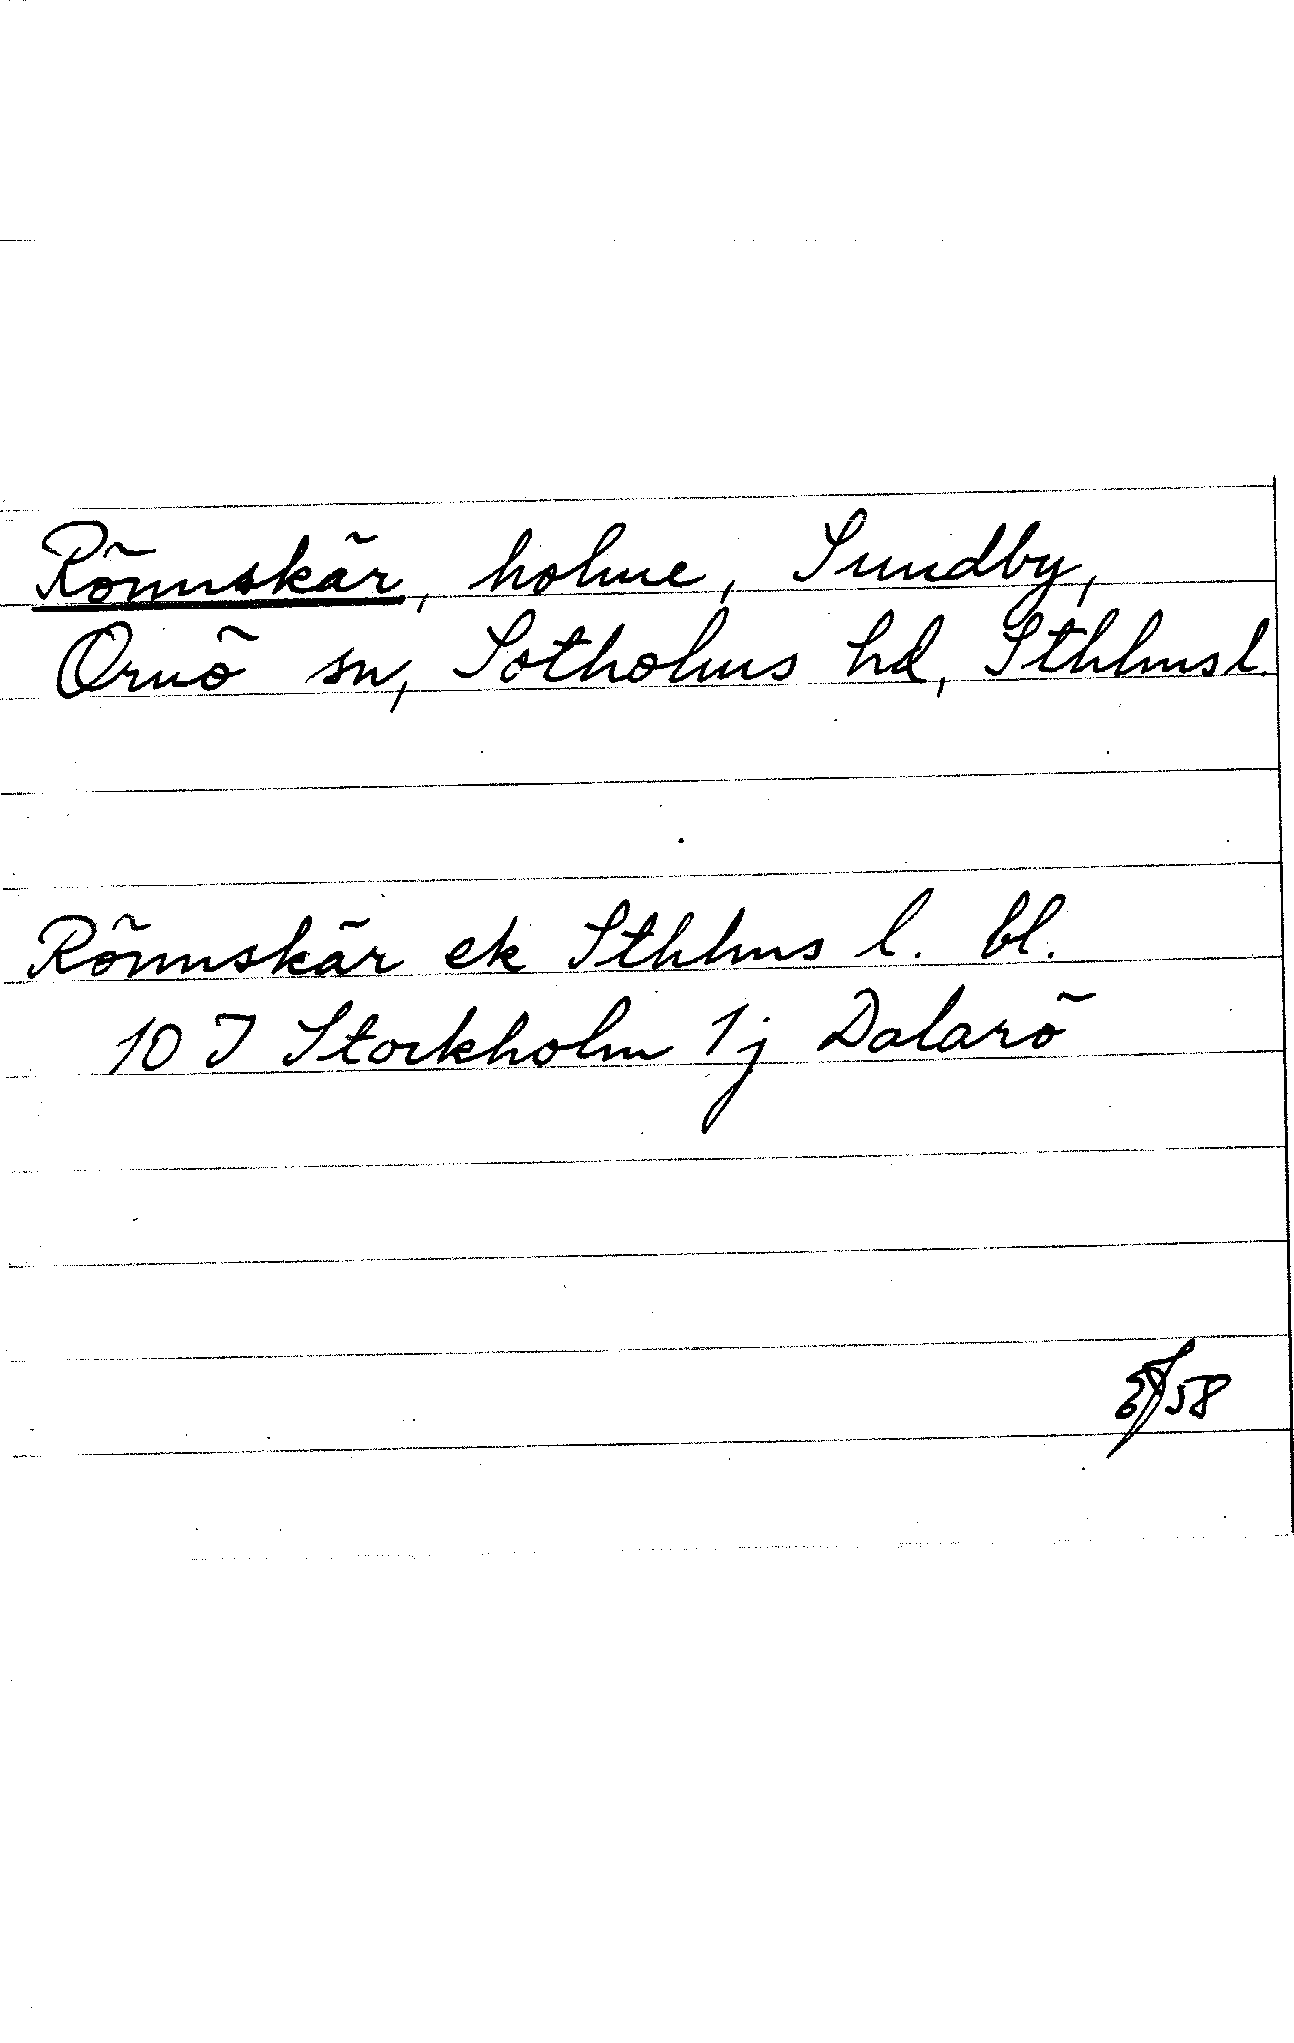 Rönnskär, holme, Sundby,
Ornö sn, Sotholms hd, Sthlms l.
Rönnskär ek Sthlms l. bl.
10 I Stockholm 1j Dalarö
58